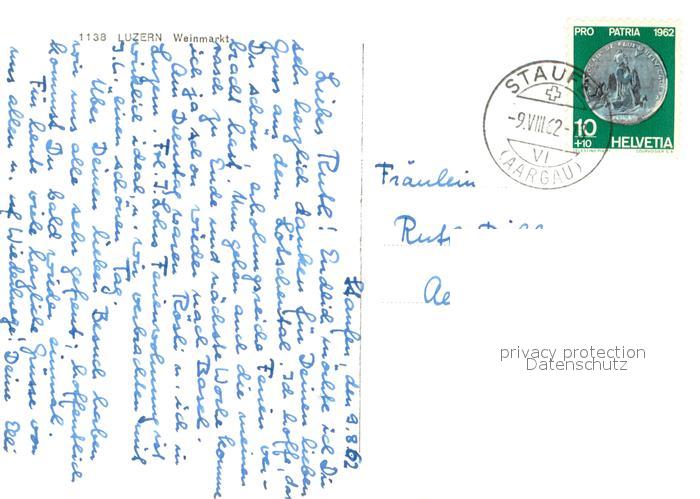 1138 LUZERN Weinmarkt
PRO PATRIA 1962
STAUFEN
-9.VIII.62-
VI
(AARGAU)
10
+10
HELVETIA
COURVOISIER S.A.
Fräulein
Ruth
Ae
privacy protection
Datenschutz
Staufen, den 9.8.62
Liebes Ruth! Endlich möchte ich Dir
sehr herzlich danken für Deinen lieben
Gruss aus dem Lötschental. Ich hoffe, dass
Du schöne, erholungsreiche Ferien ver-
bracht hast. Nun gehen auch die meinen
rasch zu Ende und nächste Woche komme
ich ja schon wieder nach Basel.
Am Dienstag waren Rösli u. ich in
Ferienwohnung ist
wirklich ideal, u. wir verbrachten mit
ihr einen schönen Tag.
Über Deinen lieben Besuch haben
wir uns alle sehr gefreut; hoffentlich
kommst Du bald wieder einmal.
Für heute viele herzliche Grüsse von
uns allen u. auf Wiedersehen! Deine Elli